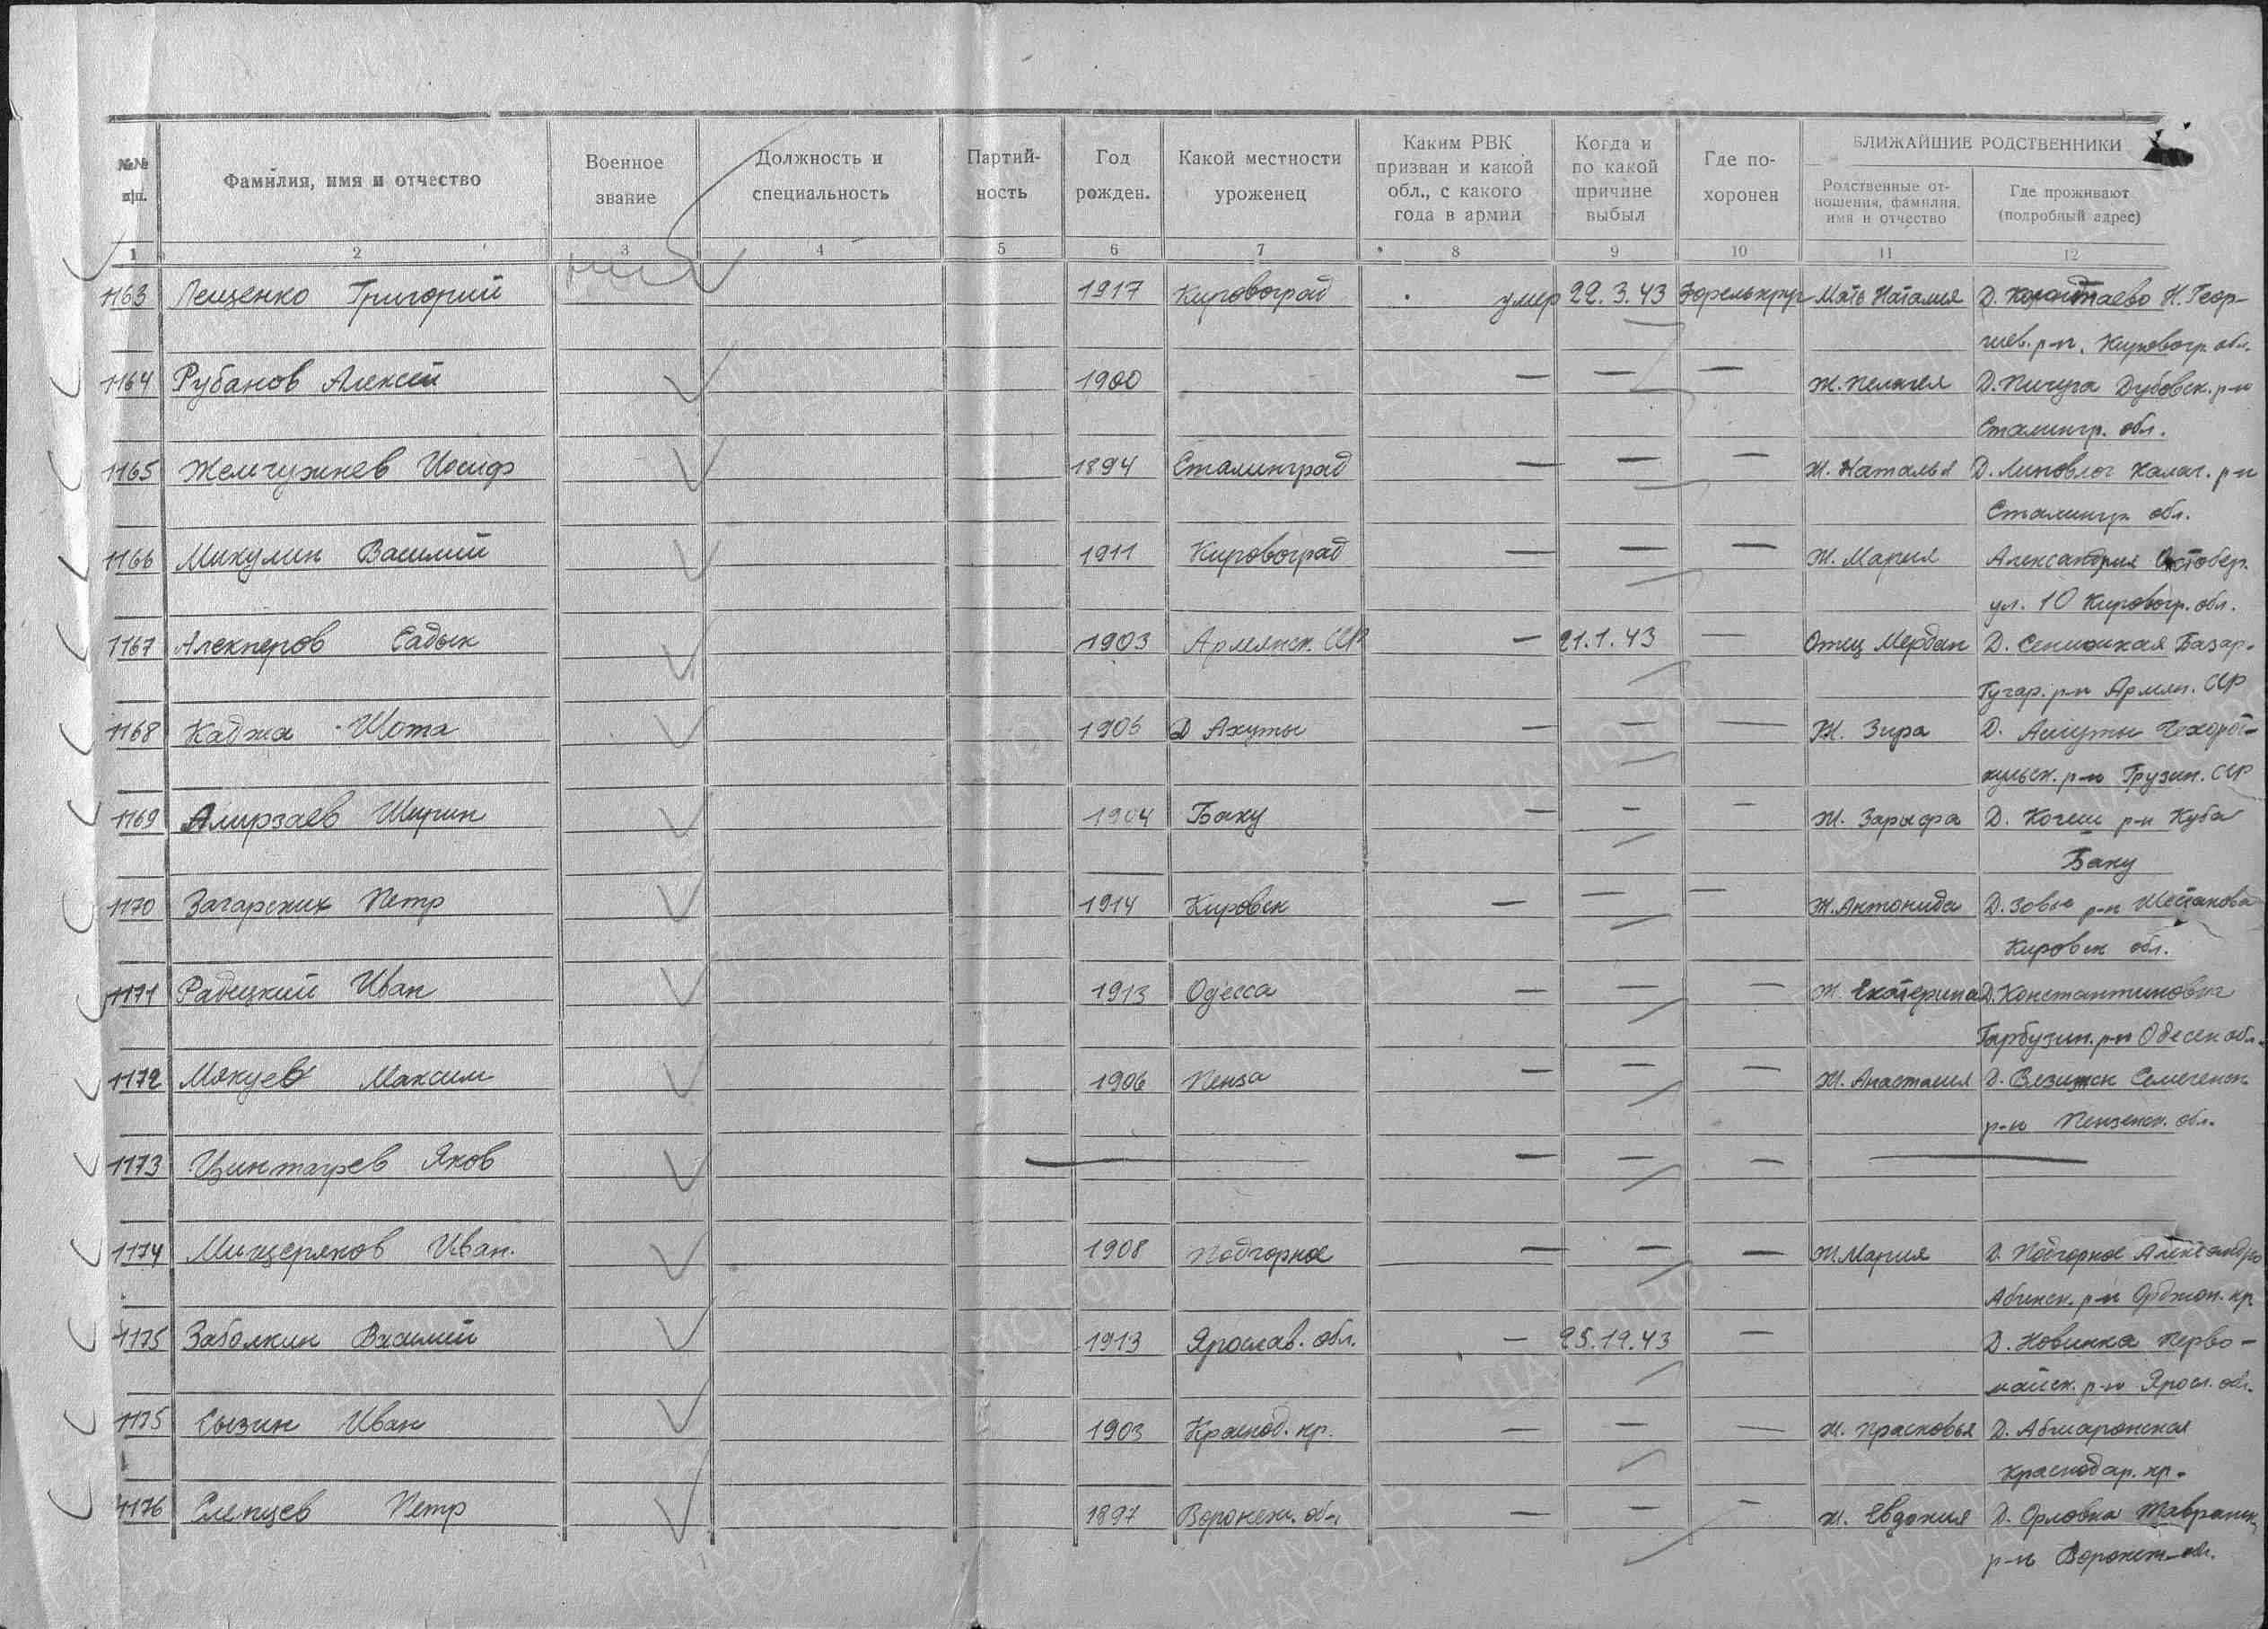 №№ п/п.
Фамилия, имя и отчество
Военное звание
Должность и специальность
Партий-ность
Год рожден.
Какой местности уроженец
Каким РВК призван и какой обл., с какого года в армии
Когда и по какой причине выбыл
Где по-хоронен
БЛИЖАЙШИЕ РОДСТВЕННИКИ
Родственные от-ношения, фамилия, имя и отчество
Где проживают (подробный адрес)
1 2 3 4 5 6 7 8 9 10 11 12
1163 Лещенко Григорий 1917 Кировоград умер 22.3.43 Мать Наталия Д. Н. Геор-
гиев. р-н, Кировогр. обл.
1164 Рубанов Алексей 1900 — — — Ж. Пелагея Д. Пичуга Дубовск. р-н
Сталингр. обл.
1165 Жемчужнев Иосиф 1894 Сталинград — — — Ж. Наталья Д. Калач. р-н
Сталингр. обл.
1166 Микулин Василий 1911 Кировоград — — — Ж. Мария Александрия Октобер.
ул. 10 Кировогр. обл.
1167 Алекперов Садык 1903 Армянск. ССР — 21.1.43 — Отец Мердан Д. Базар-
Гугар. р-н Армян. ССР
1168 Каджа Шота 1906 Д Ахуты — — — Ж. Зира Д.
р-н Грузин. ССР
1169 Амирзаев Ширин 1904 Баку — — — Ж. Зарыфа Д. р-н Куба
Баку
1170 Загарских Петр 1914 Кировск — — — Ж. Антонида Д. р-н
Кировск обл.
1171 Радецкий Иван 1913 Одесса — — — Ж. Екатерина Д. Константиновка
Гарбузин. р-н Одесск обл.
1172 Мякуев Максим 1906 Пенза — — — Ж. Анастасия Д.
р-н Пензенск. обл.
1173 Яков — — — — —
1174 Мищеряков Иван. 1908 Подгорное — — — Ж. Мария Д. Подгорное Александро
р-н Орджон. кр
1175 Заболкин Василий 1913 Ярослав. обл. — 25.12.43 — Д. Новинка Перво-
майск. р-н Яросл. обл.
1175 Сызин Иван 1903 Краснод. кр. — — — Ж. Прасковья Д. Абшаронская
Краснодар. кр.
1176 Слепцев Петр 1897 Воронеж. обл — — — Ж. Евдокия Д. Орловка
р-н Воронеж. обл.